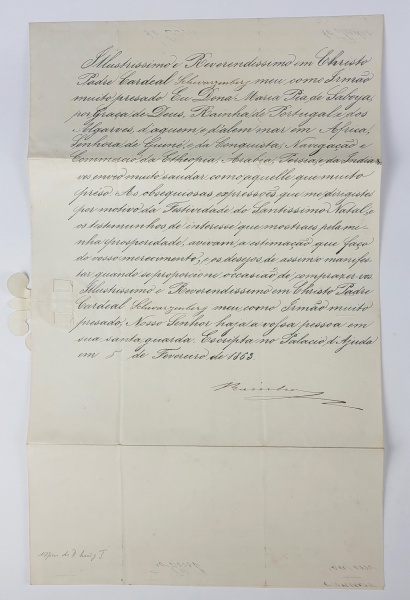 Illustrissimo e Reverendissimo em Christo
Padre Cardeal Schwarzenberg meu como Irmão
muito presado. Eu Dona Maria Pia de Saboya,
por Graça de Deus, Rainha de Portugal e dos
Algarves, d'aquem e d'alem mar em Africa,
Senhora de Guiné, e da Conquista, Navegação e
Commercio da Ethiopia, Arabia, Persia, e da India &
vos envio muito saudar como aquelle que muito
préso. As obsequiosas expressões que me dirigistes
por motivo da Festividade do Santissimo Natal, e
os testemunhos de interesse que mostraes pela mi-
nha prosperidade, avivam a estimação que faço
do vosso merecimento, e os desejos de assim o manifes-
tar quando se proporcione occasião de comprazer vos
Illustrissimo e Reverendissimo em Christo Padre
Cardeal Schwarzenberg meu como Irmão muito
presado, Nosso Senhor haja a vossa pessoa em
sua santa guarda. Escripta no Palacio d'Ajuda
em 5 de Fevereiro de 1863
Rainha
de D. Luiz I